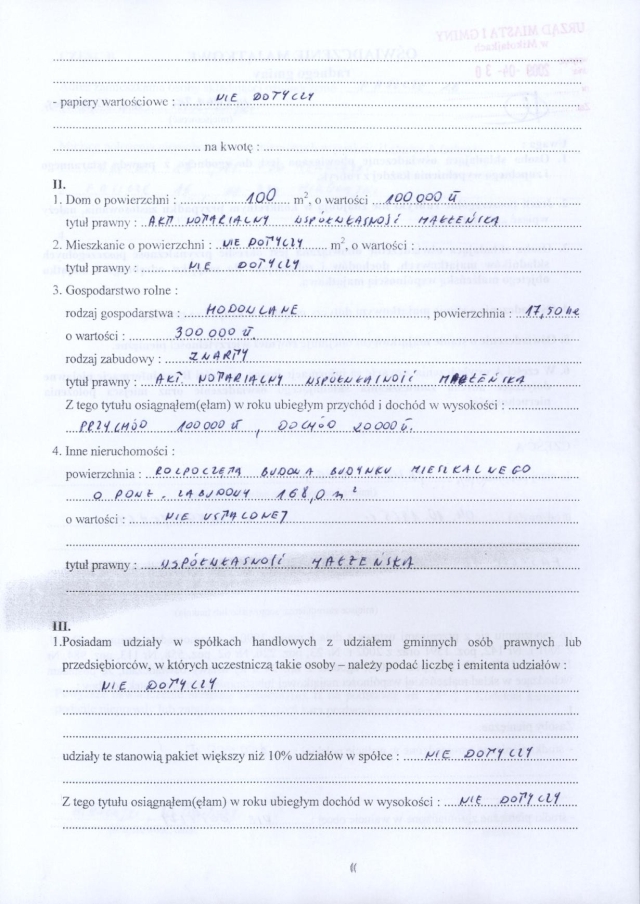 - papiery wartościowe : NIE DOTYCZY
na kwotę :
II.
1. Dom o powierzchni : 100 m², o wartości 100 000 zł
tytuł prawny : AKT NOTARIALNY WSPÓŁWŁASNOŚĆ MAŁŻEŃSKA
2. Mieszkanie o powierzchni : NIE DOTYCZY m², o wartości :
tytuł prawny : NIE DOTYCZY
3. Gospodarstwo rolne :
rodzaj gospodarstwa : HODOWLANE, powierzchnia : 17,50 ha
o wartości : 300 000 zł.
rodzaj zabudowy : ZWARTY
tytuł prawny : AKT NOTARIALNY WSPÓŁWŁASNOŚĆ MAŁŻEŃSKA
Z tego tytułu osiągnąłem(ęłam) w roku ubiegłym przychód i dochód w wysokości :
PRZYCHÓD 100 000 zł, DOCHÓD 20 000 zł.
4. Inne nieruchomości :
powierzchnia : ROZPOCZĘTA BUDOWA BUDYNKU MIESZKALNEGO
O POW. ZABUDOWY 168,0 m²
o wartości : NIE USTALONEJ
tytuł prawny : WSPÓŁWŁASNOŚĆ MAŁŻEŃSKA
III.
1.Posiadam udziały w spółkach handlowych z udziałem gminnych osób prawnych lub
przedsiębiorców, w których uczestniczą takie osoby – należy podać liczbę i emitenta udziałów :
NIE DOTYCZY
udziały te stanowią pakiet większy niż 10% udziałów w spółce : NIE DOTYCZY
Z tego tytułu osiągnąłem(ęłam) w roku ubiegłym dochód w wysokości : NIE DOTYCZY